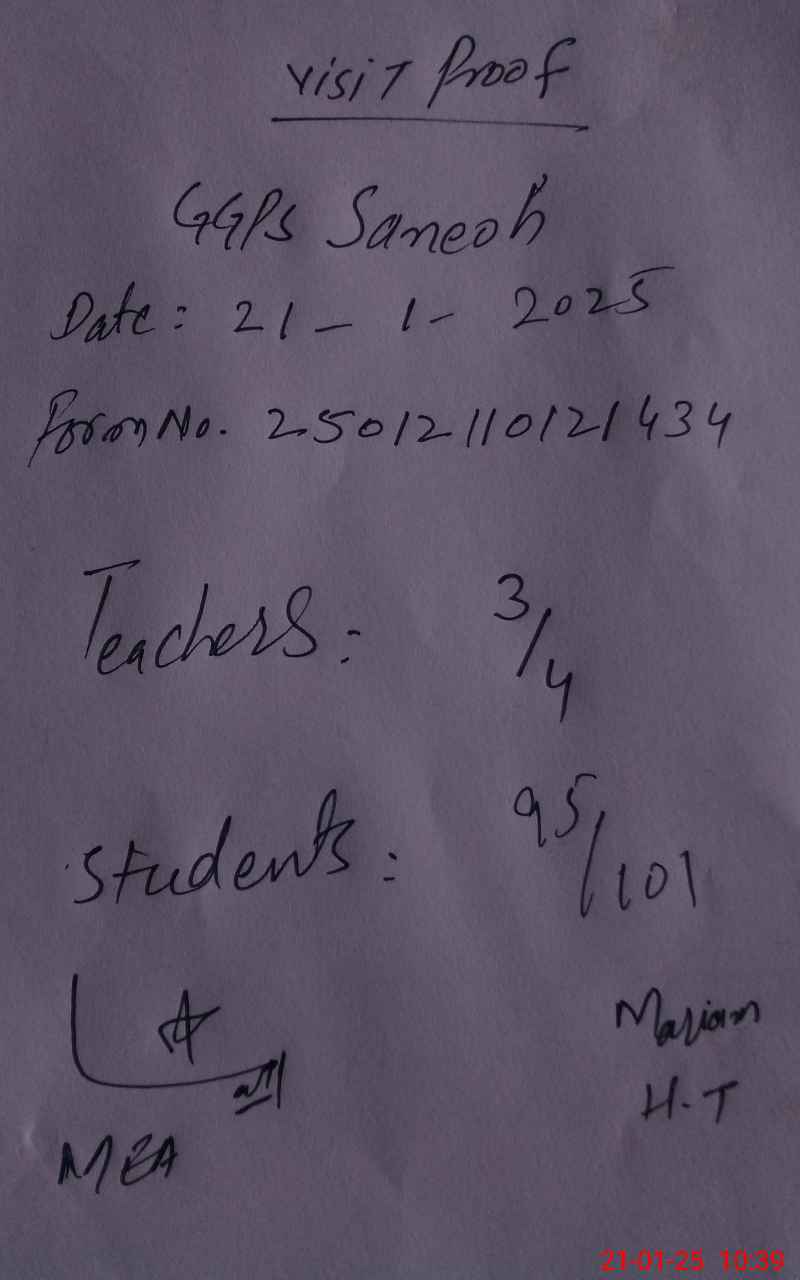 Visit Proof
GGPS Saneoh
Date: 21-1-2025
Form No. 25012110121434
Teachers: 3/4
Students: 95/101
Mariam
H.T
MEA
21-01-25 10:39